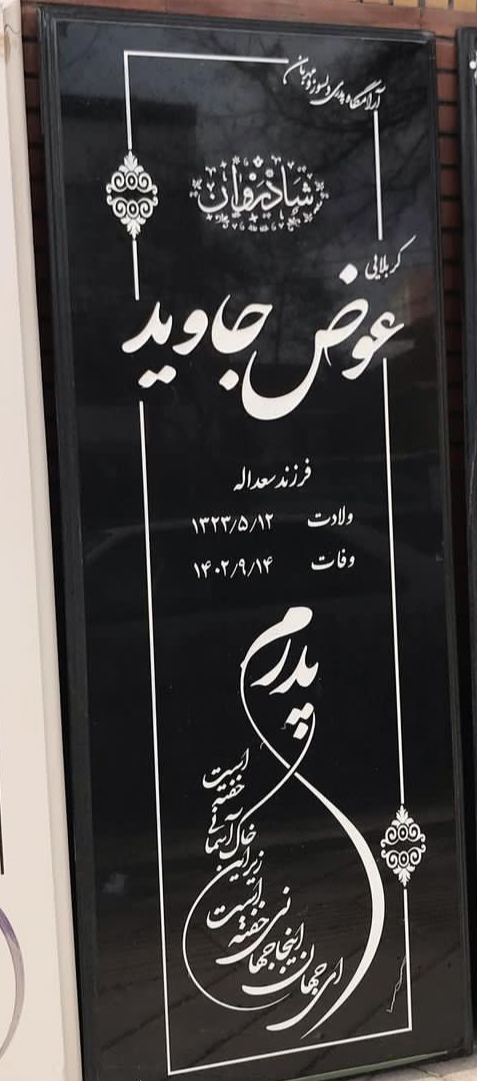 آرامگاه پدری دلسوز و مهربان
شادروان
کربلایی
عوض جاوید
فرزند سعداله
ولادت ۱۳۲۳/۵/۱۲
وفات ۱۴۰۲/۹/۱۴
پدرم
ای جهان
اینجا جهانی
خفته است
زیر این
خاک آسمانی
خفته
است